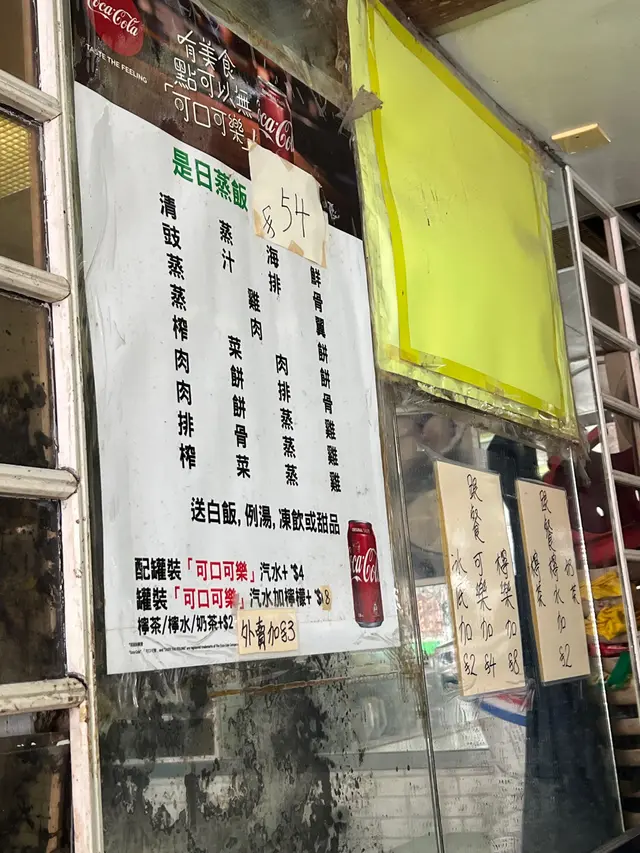 Coca-Cola
TASTE THE FEELING
有美食
點可以無
「可口可樂」
是日蒸飯
$54
清蒸海鮮
豉汁排骨
蒸雞翼
蒸肉餅
榨菜肉餅
肉餅排骨
肉餅蒸雞
排骨蒸雞
榨菜蒸雞
送白飯, 例湯, 凍飲或甜品
配罐裝「可口可樂」汽水+ $4
罐裝「可口可樂」汽水加檸檬+ $8
檸茶/檸水/奶茶+$2
外賣加$3
跟餐
加$2
可樂加$4
檸樂加$8
跟餐
檸茶
檸水加$2
奶茶